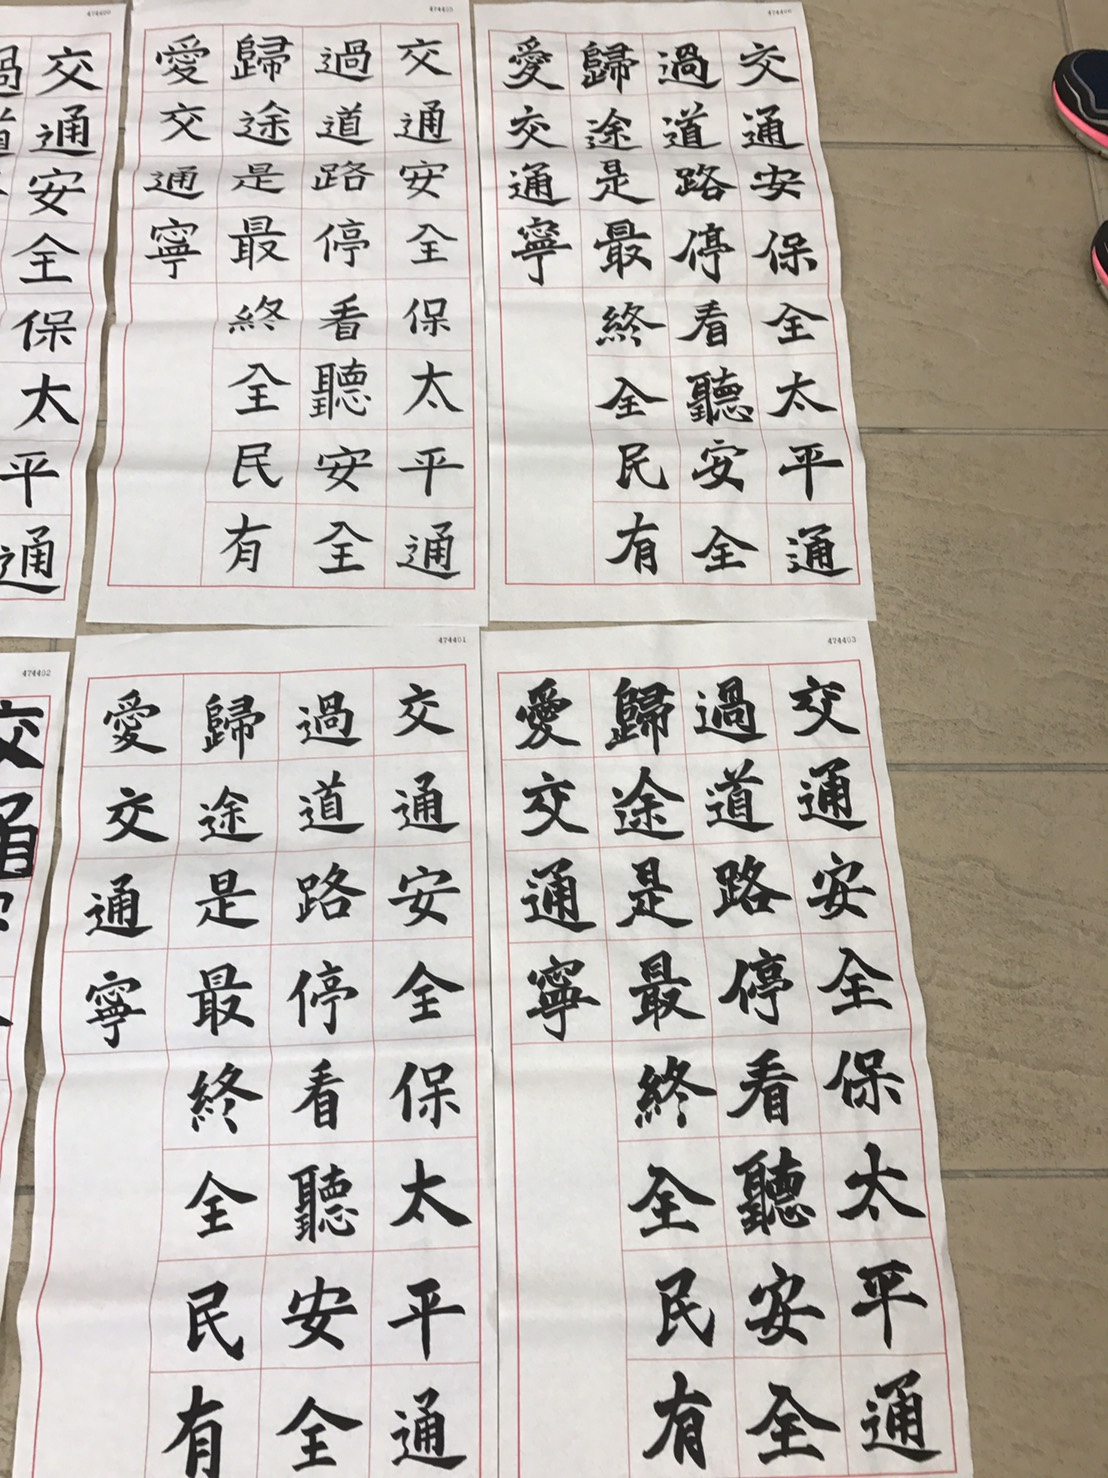 474406
交通安保全太平通
過道路停看聽安全
歸途是最終全民有
愛交通寧
474405
交通安全保太平通
過道路停看聽安全
歸途是最終全民有
愛交通寧
交通安全保太平通
過道
474403
交通安全保太平通
過道路停看聽安全
歸途是最終全民有
愛交通寧
474401
交通安全保太平通
過道路停看聽安全
歸途是最終全民有
愛交通寧
474402
交通